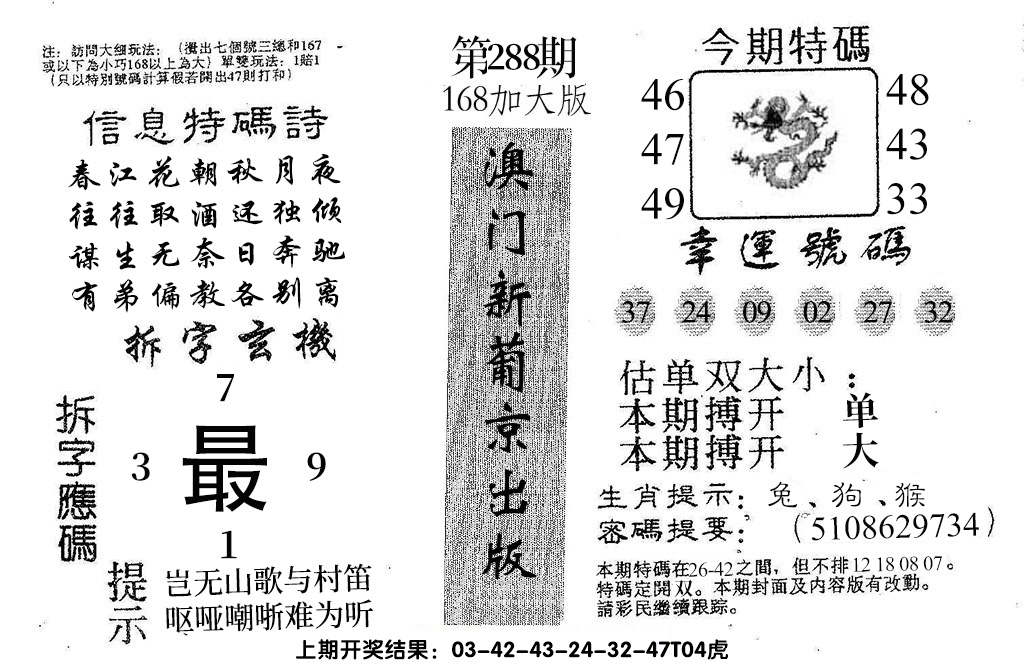 注：訪問大细玩法：（攪出七個號三總和167
或以下為小巧168以上為大）單雙玩法：1賠1
（只以特别號碼計算假若開出47則打和）
信息特碼詩
春江花朝秋月夜
往往取酒还独倾
谋生无奈日奔驰
有弟偏教各别离
拆字玄機
拆字應碼
7
3 最 9
1
提示
岂无山歌与村笛
呕哑嘲哳难为听
第288期
168加大版
澳门新葡京出版
今期特碼
46 48
47 43
49 33
幸運號碼
37 24 09 02 27 32
估单双大小：
本期搏开 单
本期搏开 大
生肖提示：兔、狗、猴
密碼提要：（5108629734）
本期特碼在26-42之間，但不排12 18 08 07。
特碼定閱双。本期封面及内容版有改動。
請彩民繼續跟踪。
上期开奖结果：03-42-43-24-32-47T04虎